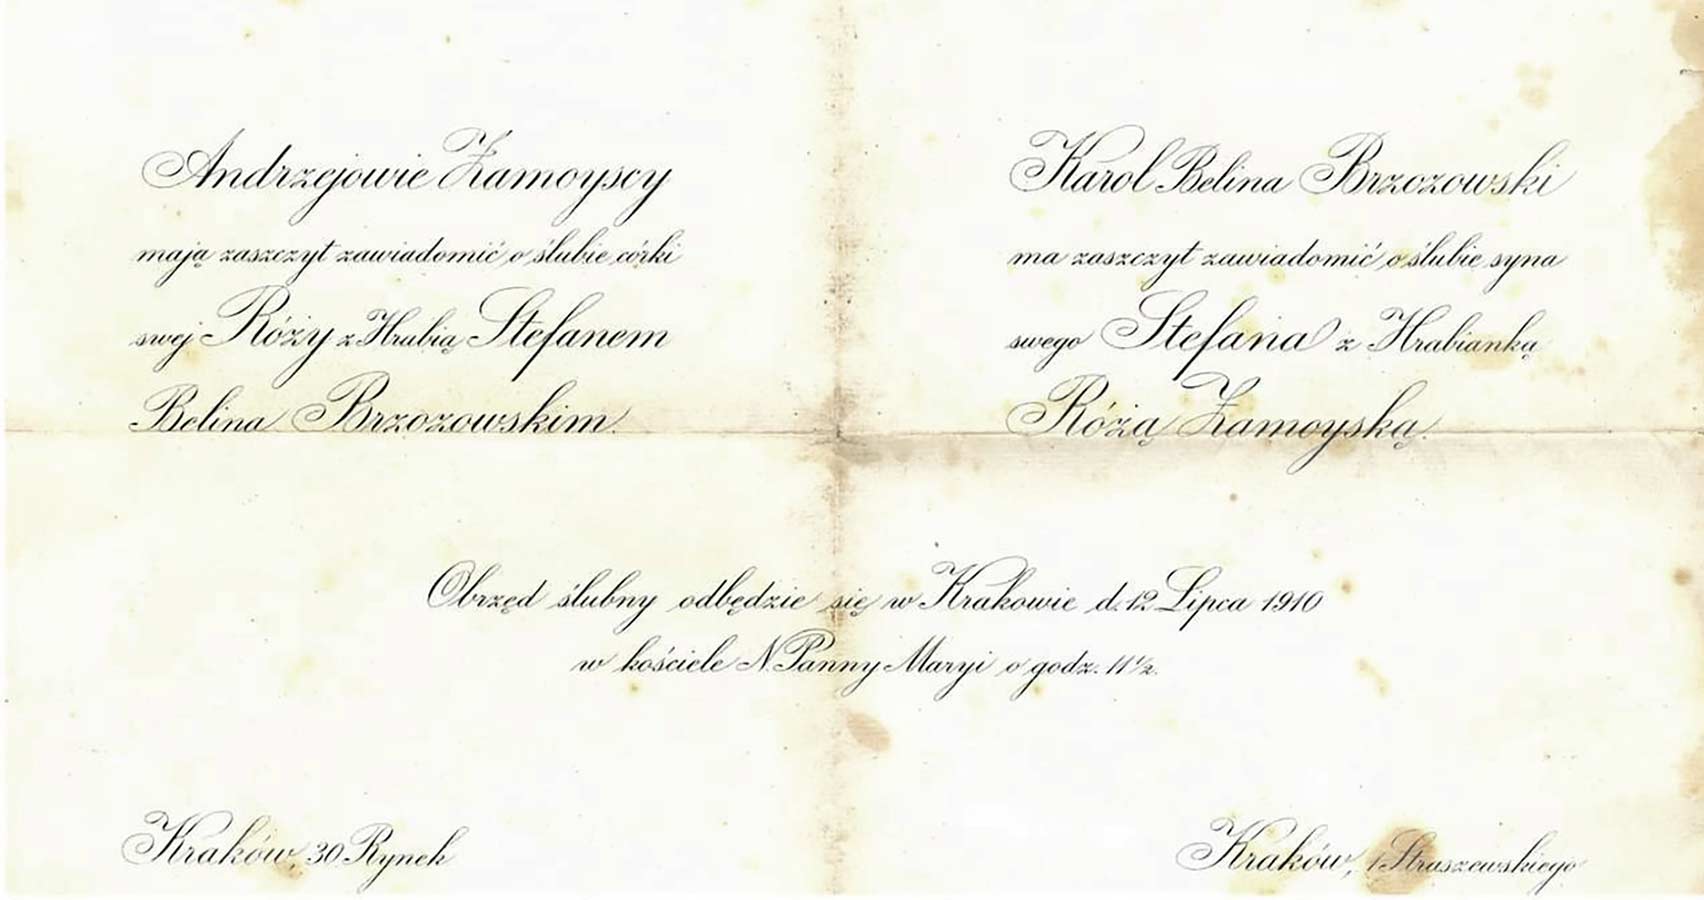 Andrzejowie Zamoyscy
mają zaszczyt zawiadomić o ślubie córki
swej Róży z Hrabią Stefanem
Belina Brzozowskim.
Karol Belina Brzozowski
ma zaszczyt zawiadomić o ślubie syna
swego Stefana z Hrabianką
Różą Zamoyską.
Obrzęd ślubny odbędzie się w Krakowie d. 12 Lipca 1910
w kościele N. Panny Maryi o godz. 11 ½.
Kraków, 30 Rynek
Kraków, 1 Straszewskiego